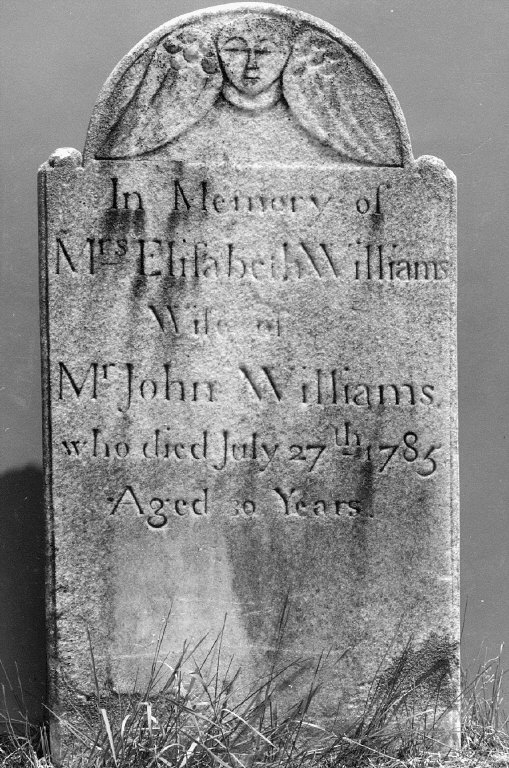 In Memory of
Mrs Eliſabeth Williams
Wife of
Mr John Williams
who died July 27th 1785
Aged 30 Years.